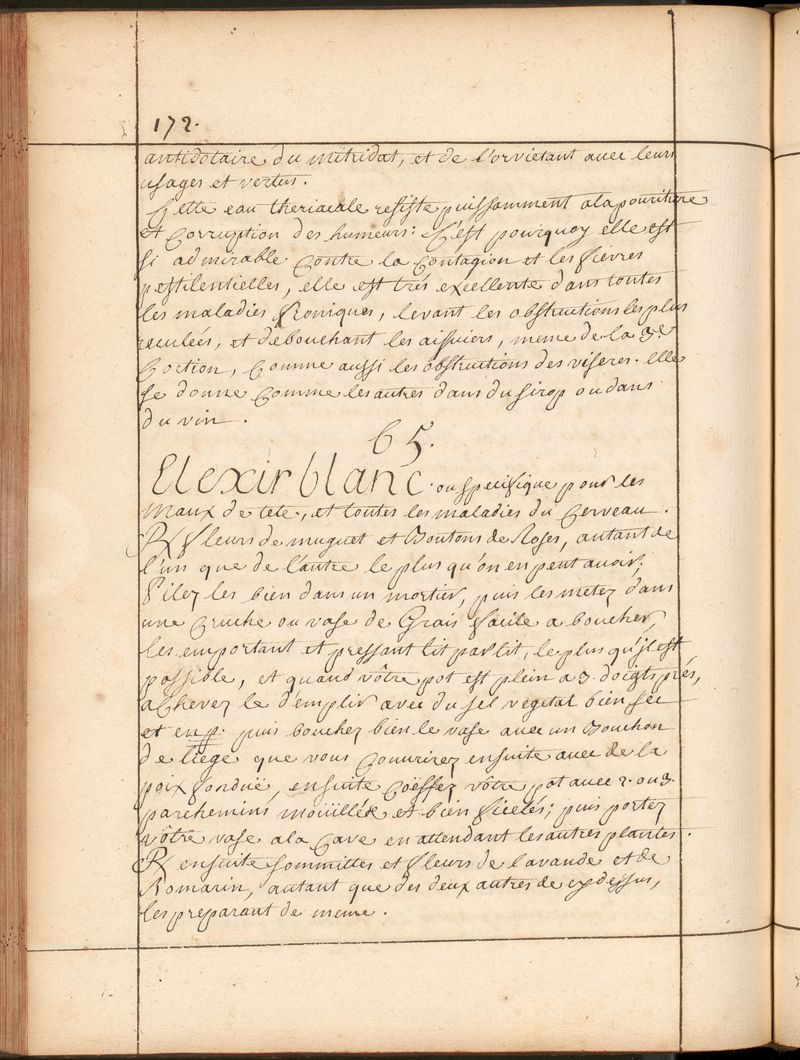 172.
antidotaire du mitridat, et de l'orvietant avec leurs
usages et vertus.
Cette eau theriacale resiste puissamment a la pouriture
et Corruption des humeurs: C'est pourquoy elle est
si admirable Contre la Contagion et les fievres
pestilentielles, elle est trés excellente dans toutes
les maladies Kroniques, levant les obstructions les plus
reculées, et débouchant les aissiers, meme de la 3.e
Coction, Comme aussi les obstructions des viseres. elle
se donne Comme les autres dans du sirop ou dans
du vin.
65.
Elexir blanc. ou specifique pour les
maux de tete, et toutes les maladies du Cerveau.
℞ fleurs de muguet et Boutons de Roses, autant de
l'un que de l'autre le plus qu'on en peut avoir;
Pilez les bien dans un mortier, puis les metez dans
une Cruche ou vase de Grais facile a boucher,
les emportant et pressant lit par lit, le plus qu'il est
possible, et quand vôtre pot est plein a 3. doigts prés,
achevez le d'emplir avec du sel vegetal bien sec
et en p. puis bouchez bien le vase avec un Bouchon
de liege que vous Couvrirez ensuite avec de la
poix fonduë, ensuite Coëffez vôtre pot avec 2. ou 3.
parchemins moüillés et bien ficelés; puis portez
vôtre vase a la Cave en attendant les autres plantes.
℞ ensuite sommittes et fleurs de lavande et de
Romarin, autant que des deux autres de cy dessus,
les preparant de meme.